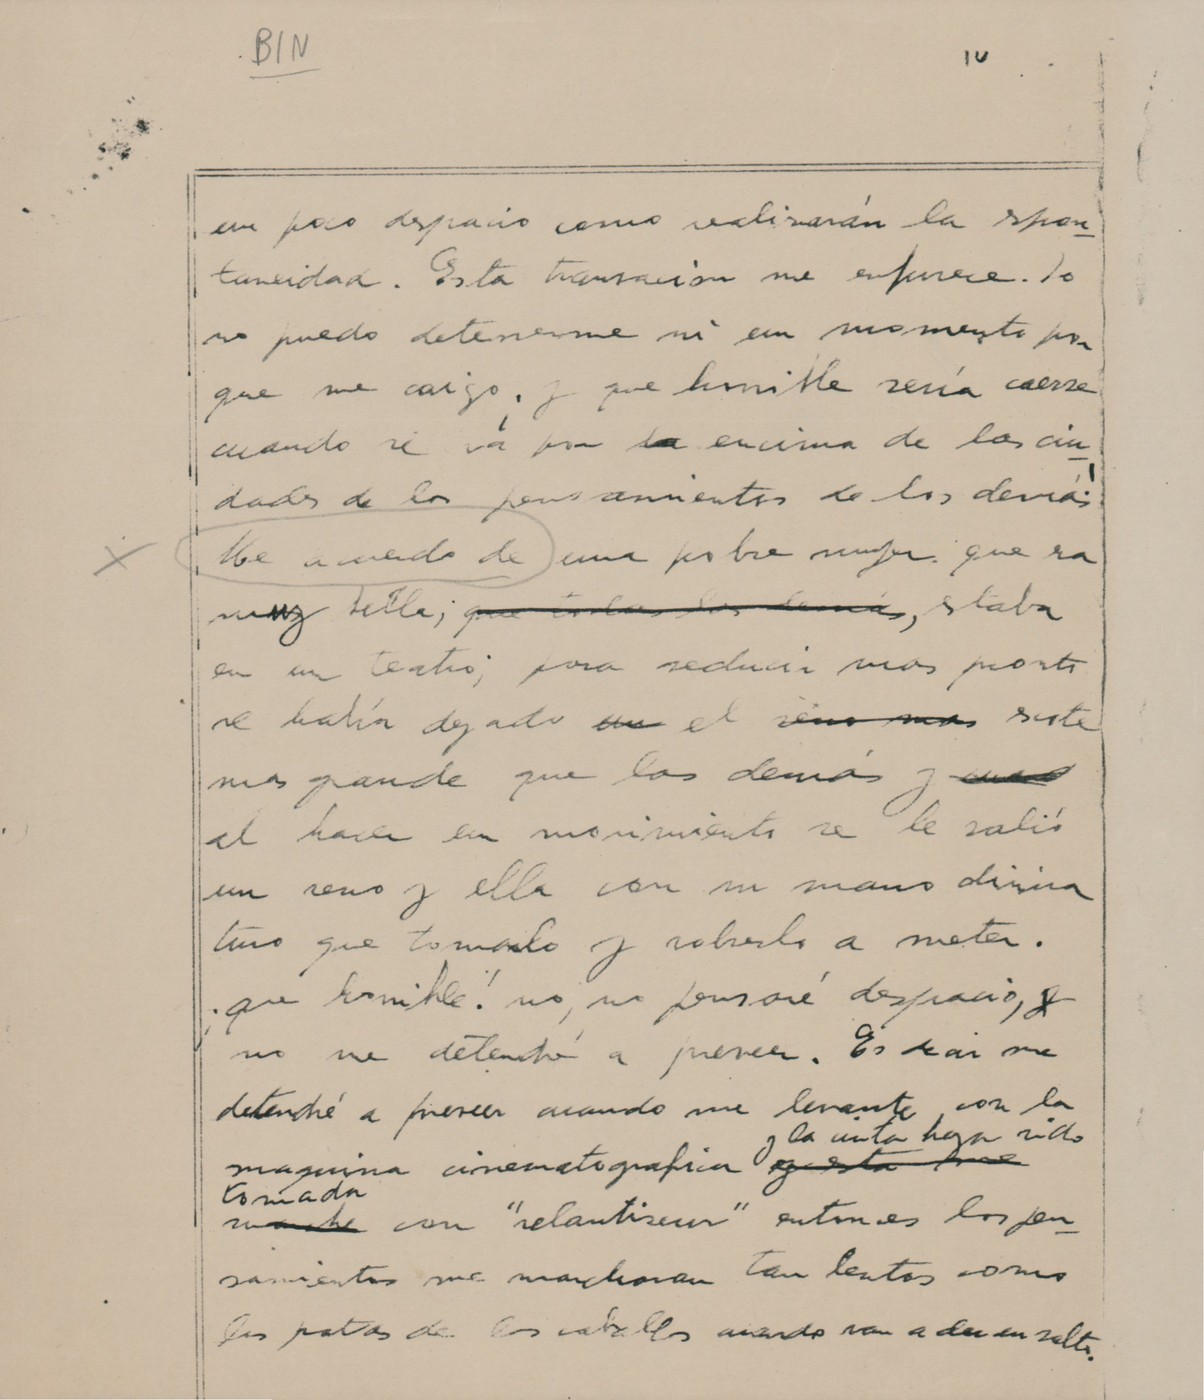 BIN
10
un poco despacio como realizarán la espon-
taneidad. Esta transacion me enfurece. Yo
no puedo detenerme ni un momento por
que me caigo. y que horrible sería caerse
cuando se vá por la encima de las ciu-
dades de los pensamientos de los demás!
Me acuerdo de una pobre mujer que era
muy bella; que todos los demás, estaba
en un teatro; para seducir mas pronto
se había dejado un el seno mas escote
mas grande que las demás y
al hacer un movimiento se le salió
un seno y ella con su mano divina
tuvo que tomarlo y volverlo a meter.
¡que horrible! no, no pensaré despacio, y
no me detendré a preveer. Es decir me
detendré a preveer cuando me levante con la
y la cinta haya sido
maquina cinematografica y esta me
tomada
marche con "relantiseur" entonces los pen-
samientos me marcharan tan lentos como
las patas de los caballos cuando van a dar un salto.